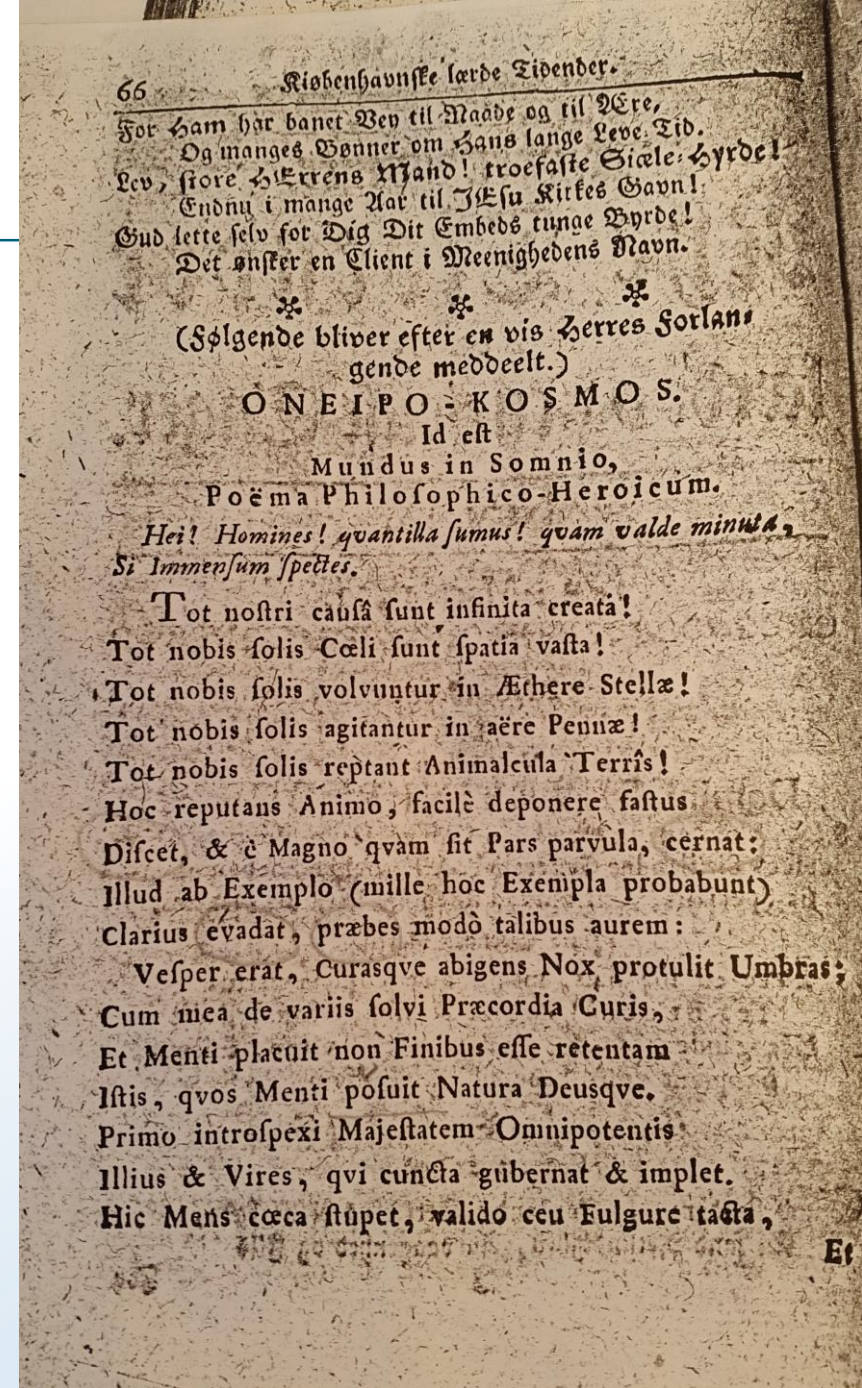 66 Kiøbenhavnske lærde Tidender.
For Ham har banet Vey til Maade og til Ære,
Og manges Bønner om Hans lange Leve-Tid.
Lev, store HErrens Mand! troefaste Siæle-Hyrde!
Endnu i mange Aar til JEsu Kirkes Gavn!
Gud lette selv for Dig Dit Embeds tunge Byrde!
Det ønsker en Client i Meenighedens Navn.
(Følgende bliver efter en vis Herres Forlan-
gende meddeelt.)
ONEIPO-KOSMOS.
Id eſt
Mundus in Somnio,
Poëma Philoſophico-Heroicum.
Hei! Homines! qvantilla ſumus! qvàm valde minuta,
Si Immenſum ſpectes.
Tot noſtri cauſâ ſunt infinita creata!
Tot nobis ſolis Cœli ſunt ſpatia vaſta!
Tot nobis ſolis volvuntur in Æthere Stellæ!
Tot nobis ſolis agitantur in aëre Pennæ!
Tot nobis ſolis reptant Animalcula Terrîs!
Hoc reputans Animo, facilè deponere faſtus
Diſcet, & è Magno qvàm ſit Pars parvula, cernat:
Illud ab Exemplo (mille hoc Exempla probabunt)
Clarius evadat, præbes modò talibus aurem:
Veſper erat, Curasqve abigens Nox protulit Umbras;
Cum mea de variis ſolvi Præcordia Curis,
Et Menti placuit non Finibus eſſe retentam
Iſtis, qvos Menti poſuit Natura Deusqve.
Primo introſpexi Majeſtatem Omnipotentis
Illius & Vires, qvi cuncta gubernat & implet.
Hic Mens cœca ſtupet, valido ceu Fulgure tacta,
Et